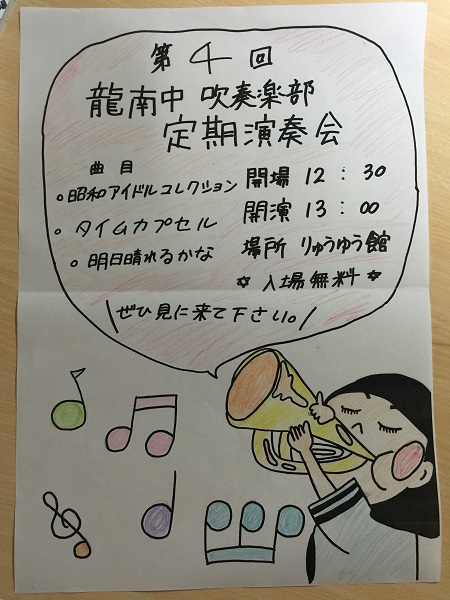 第4回
龍南中 吹奏楽部
定期演奏会
曲目
○昭和アイドルコレクション
○タイムカプセル
○明日晴れるかな
開場 12:30
開演 13:00
場所 りゅうゆう館
☆ 入場無料 ☆
\ぜひ見に来て下さい。/